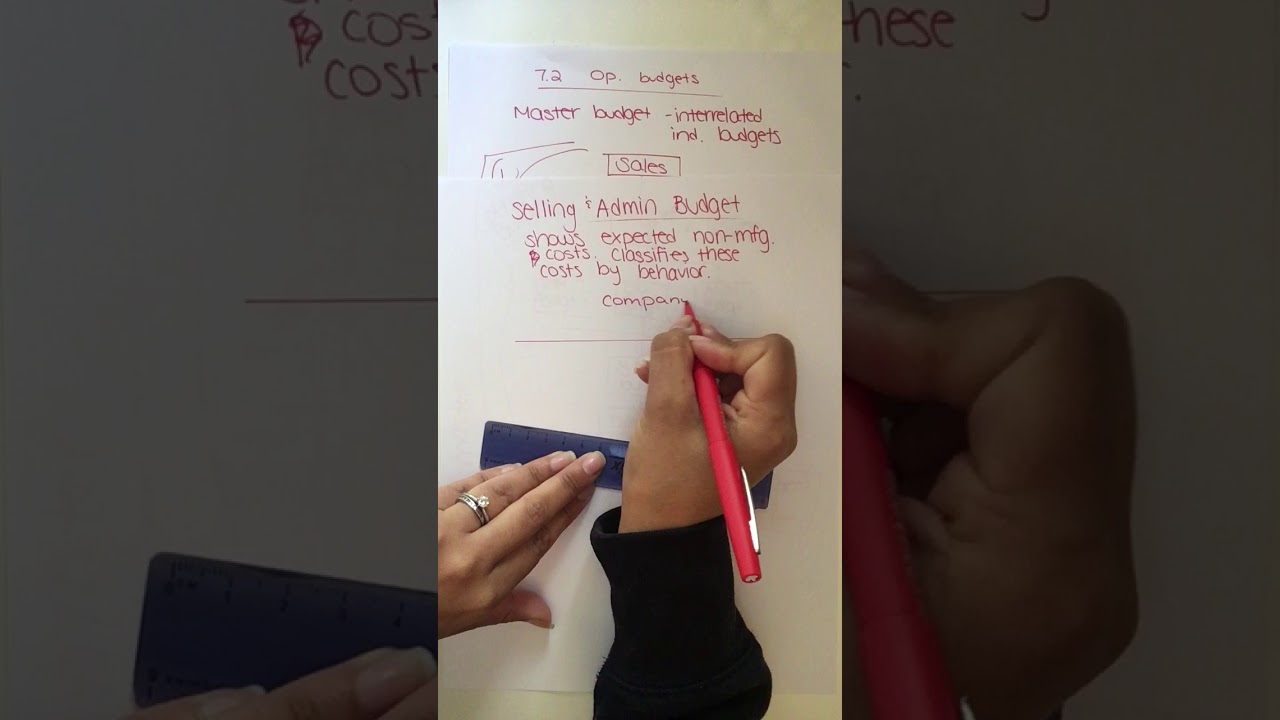 7.2 Op. budgets
Master budget - interrelated
ind. budgets
Sales
Selling & Admin Budget
shows expected non-mfg.
costs. Classifies these
costs by behavior.
company